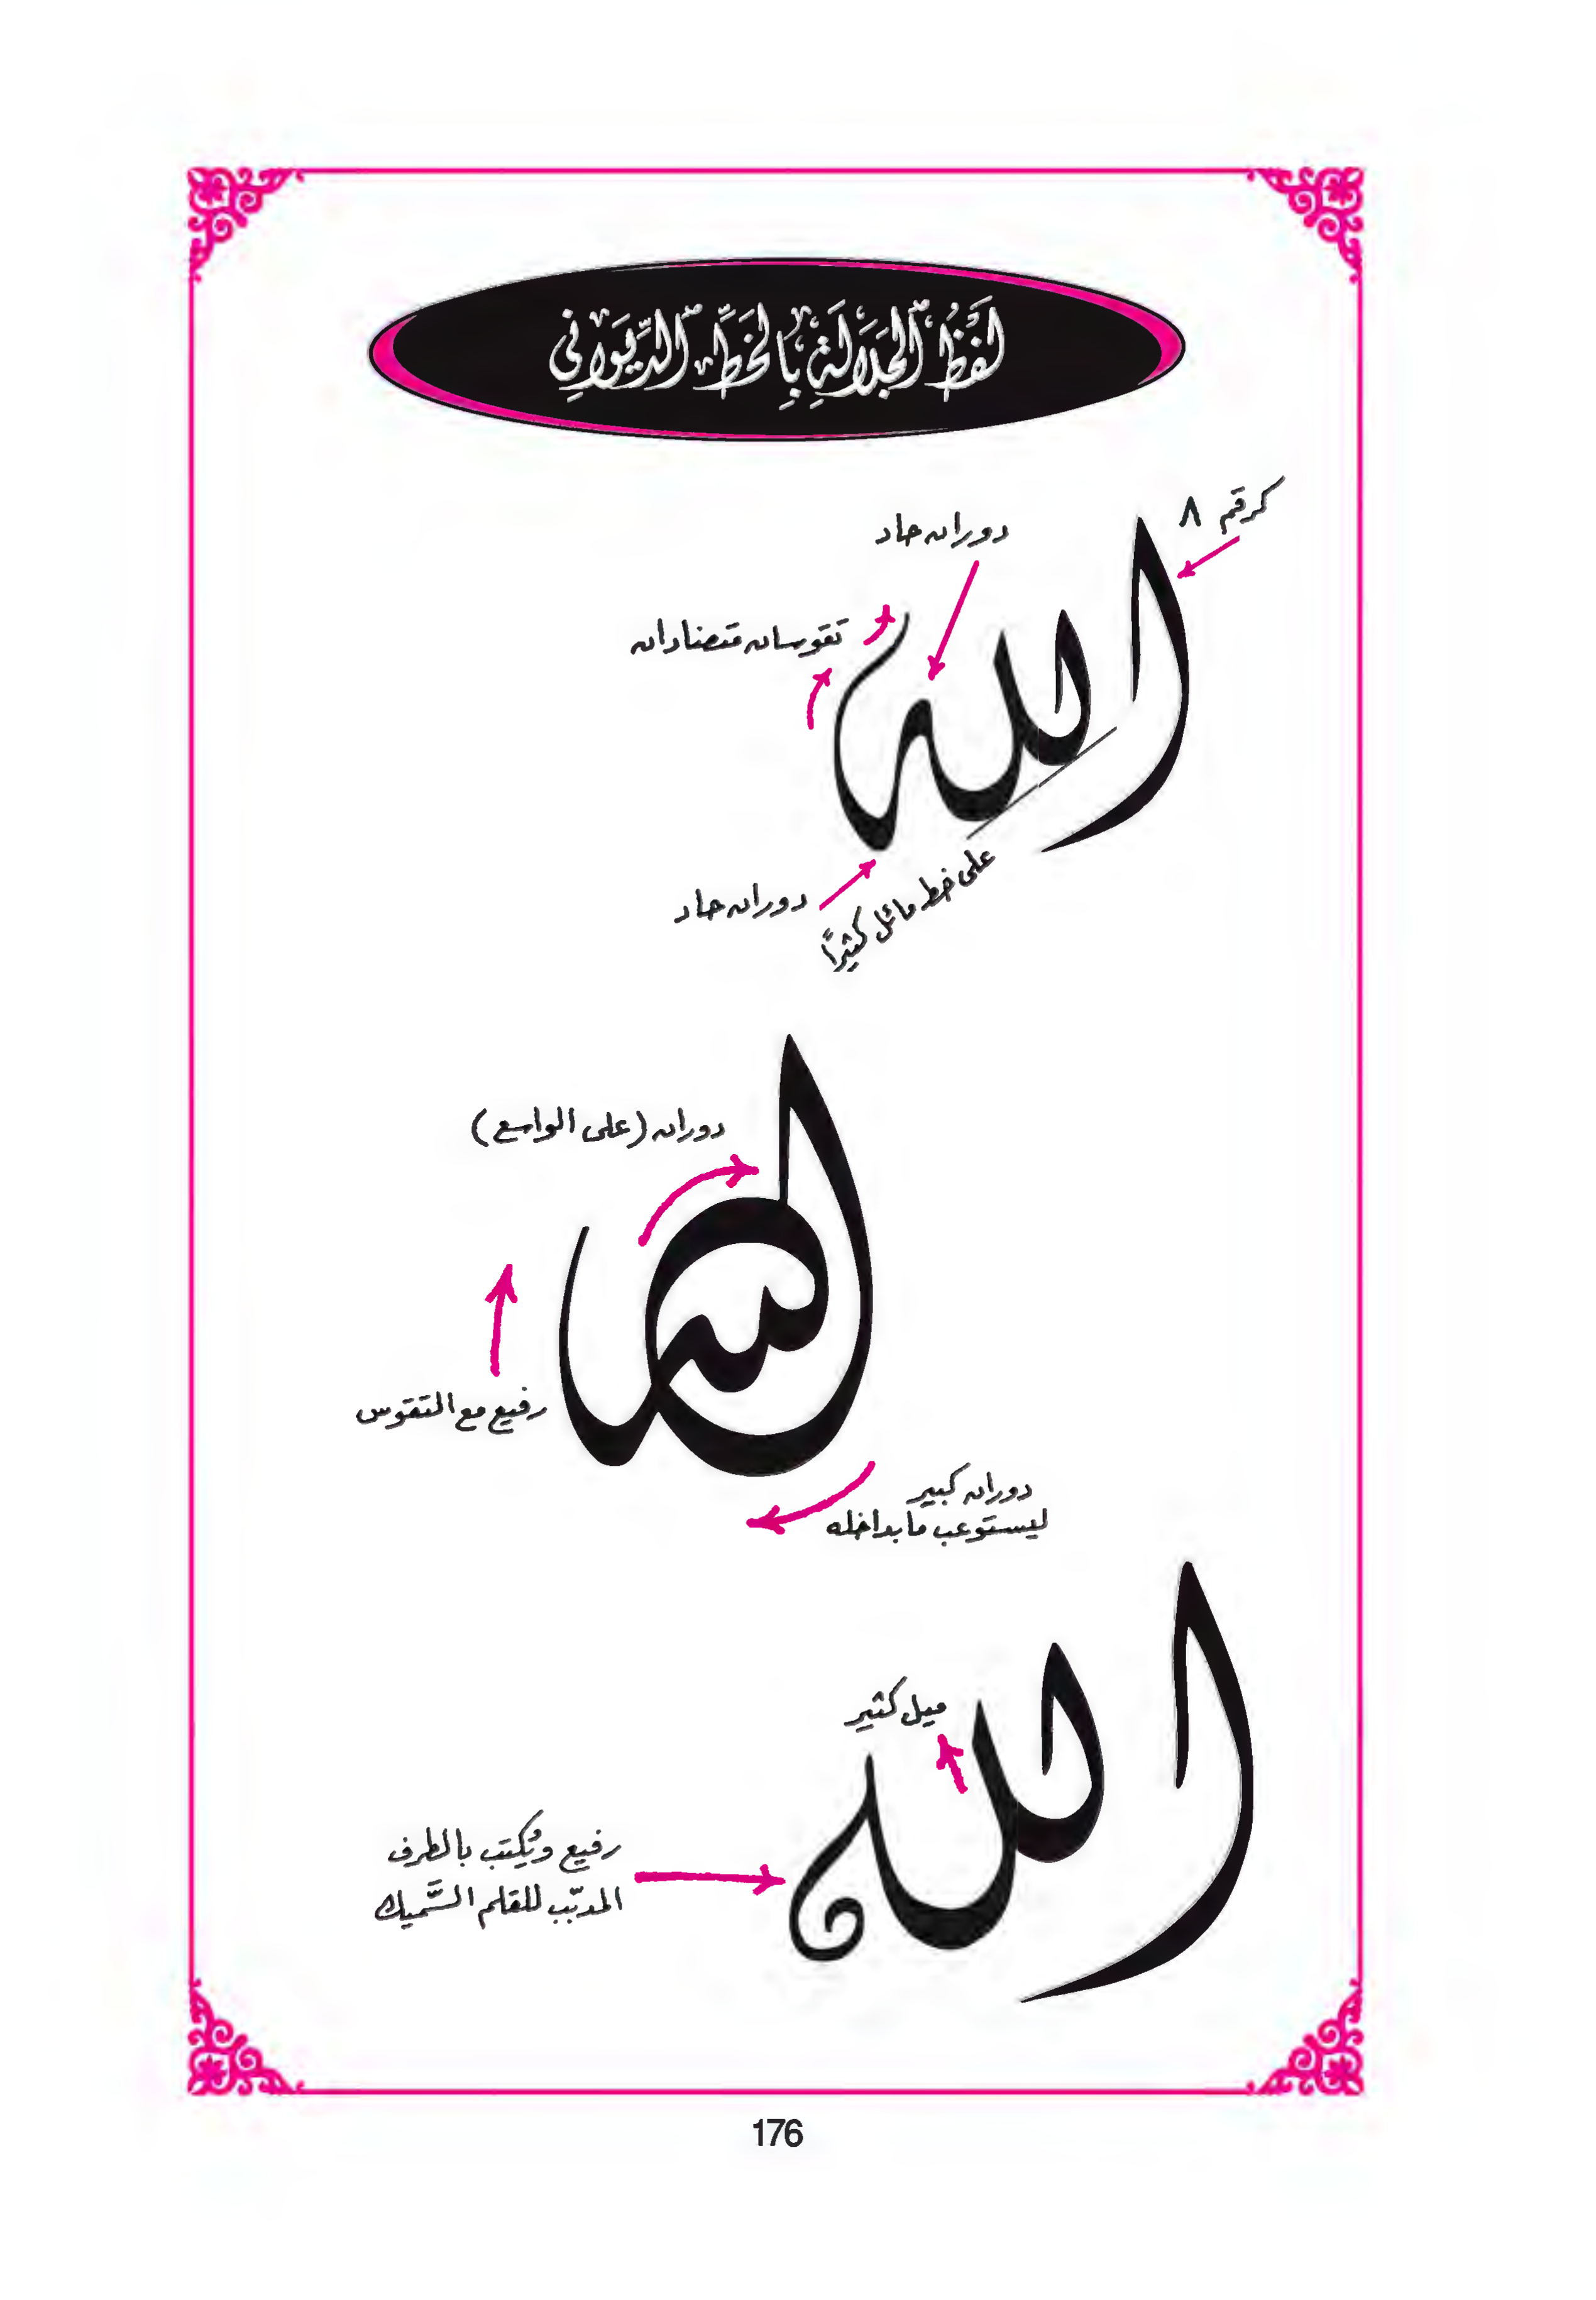 لَفْظُ الْجَلَالَةِ بِالْخَطِّ الدِّيوَانِي
كرقم ٨
دوران حاد
تقوسان متضادان
الله
دوران حاد
على خط مائل كثيرًا
دوران (على الواسع)
الله
رفيع مع التقوس
دوران كبير
ليستوعب ما بداخله
ميل كثير
الله
رفيع ويُكتب بالطرف
المدبّب للقلم السَّميك
176